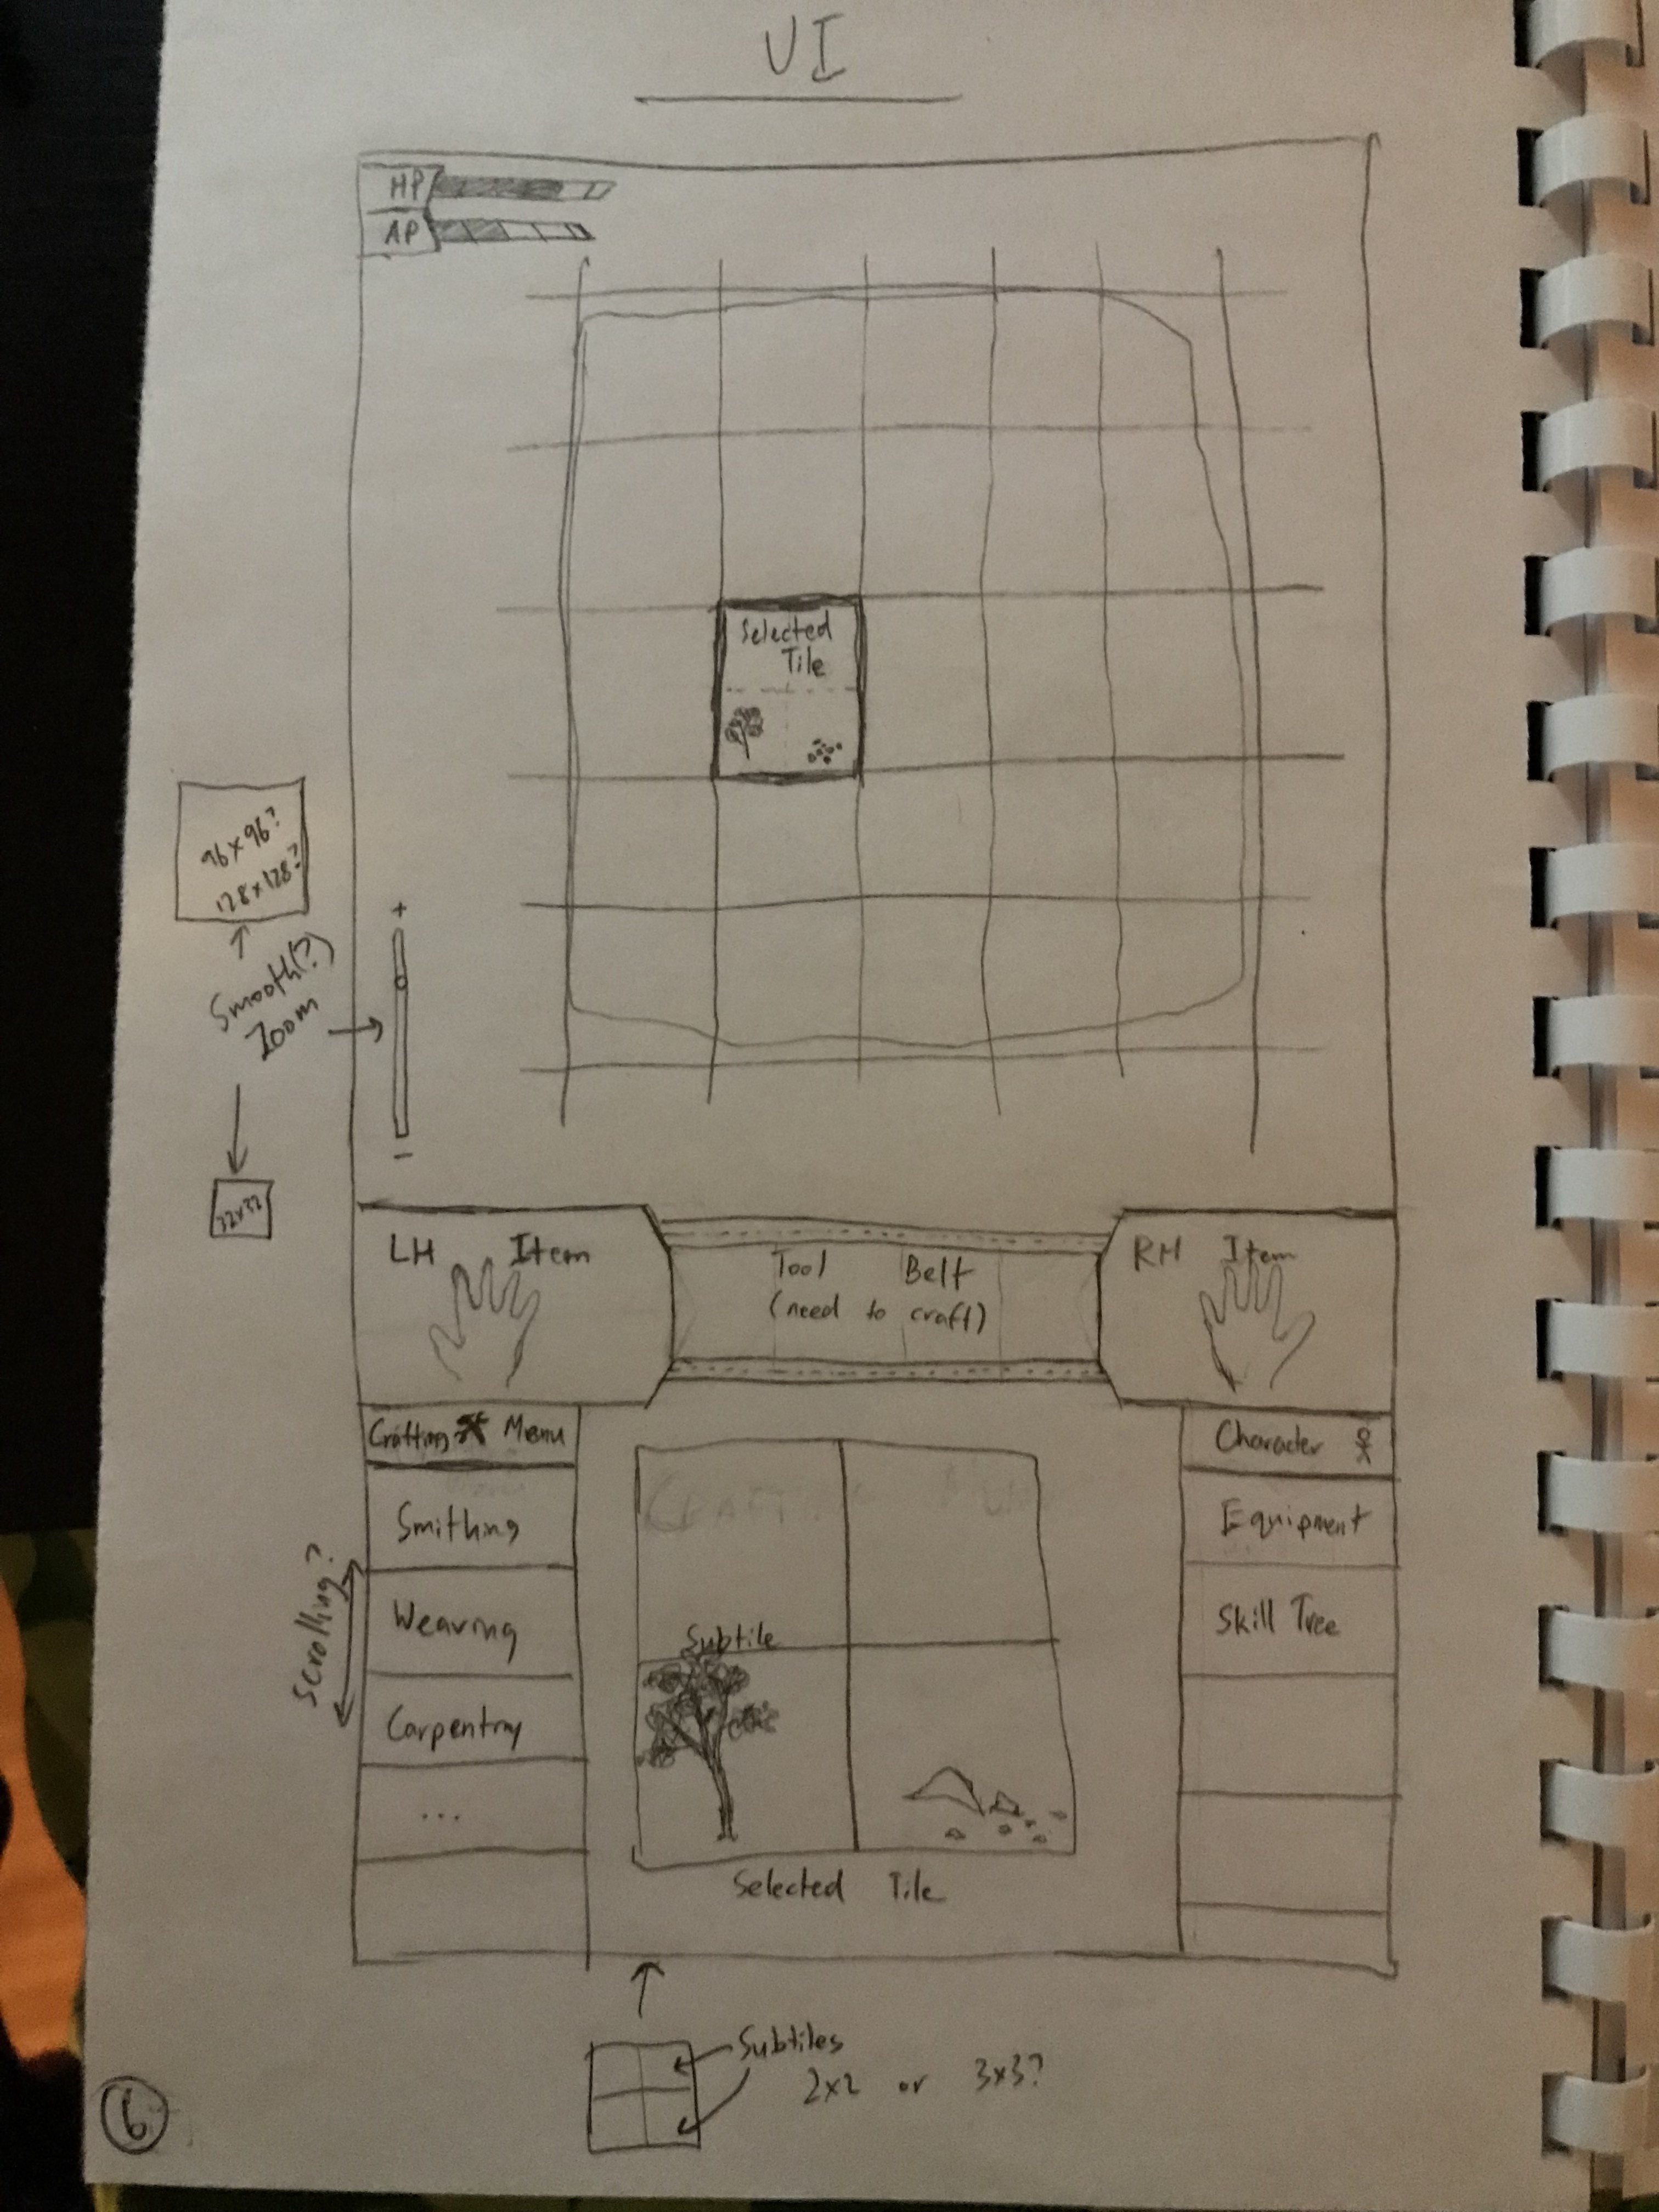 UI
HP
AP
Selected
Tile
96x96?
128x128?
+
Smooth(?)
Zoom
-
32x32
LH Item
Tool Belt
(need to craft)
RH Item
Crafting Menu
Smithing
Weaving
Carpentry
...
Scrolling?
Subtile
Selected Tile
Character
Equipment
Skill Tree
Subtiles
2x2 or 3x3?
6